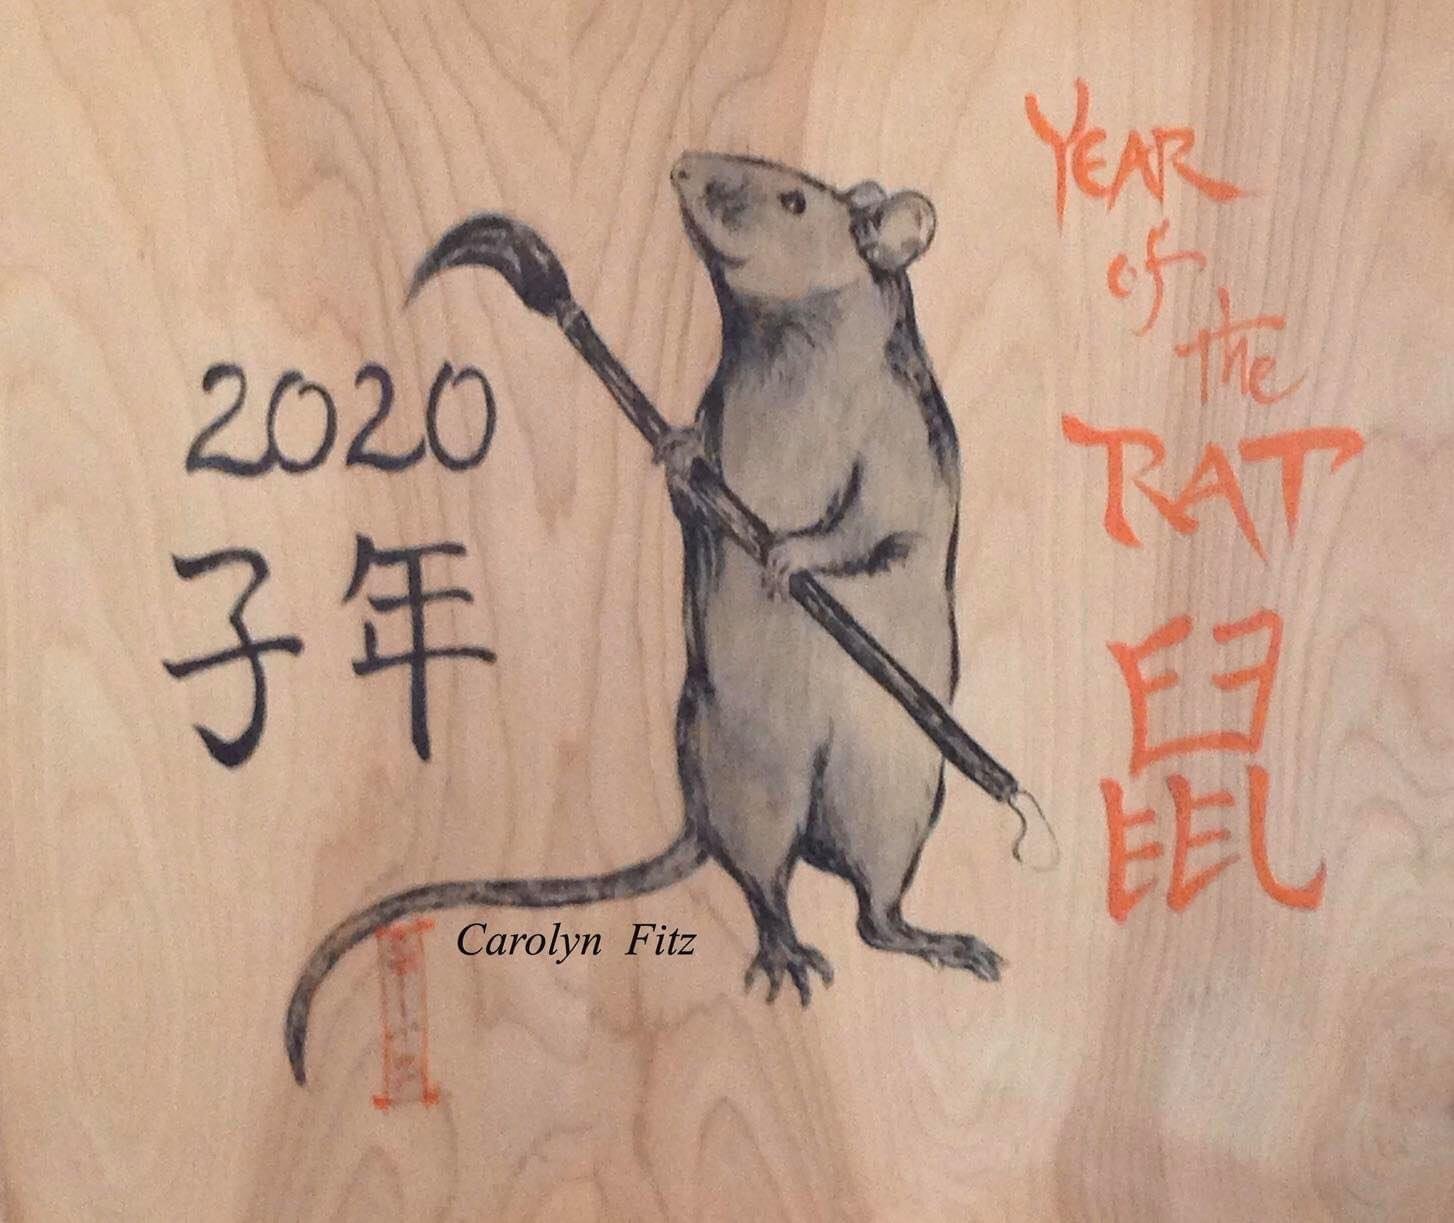 2020
子年
YEAR
of
the
RAT
鼠
Carolyn Fitz